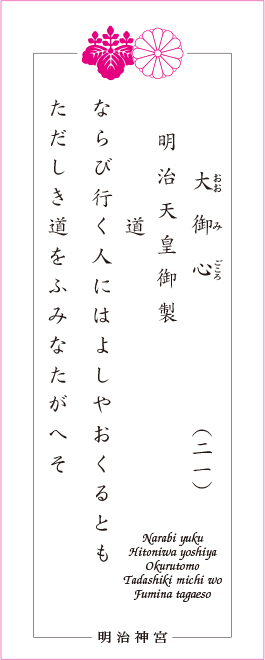 大御心
おおみごころ
（二一）
明治天皇御製
道
ならび行く人にはよしやおくるとも
ただしき道をふみなたがへそ
Narabi yuku
Hitoniwa yoshiya
Okurutomo
Tadashiki michi wo
Fumina tagaeso
明治神宮